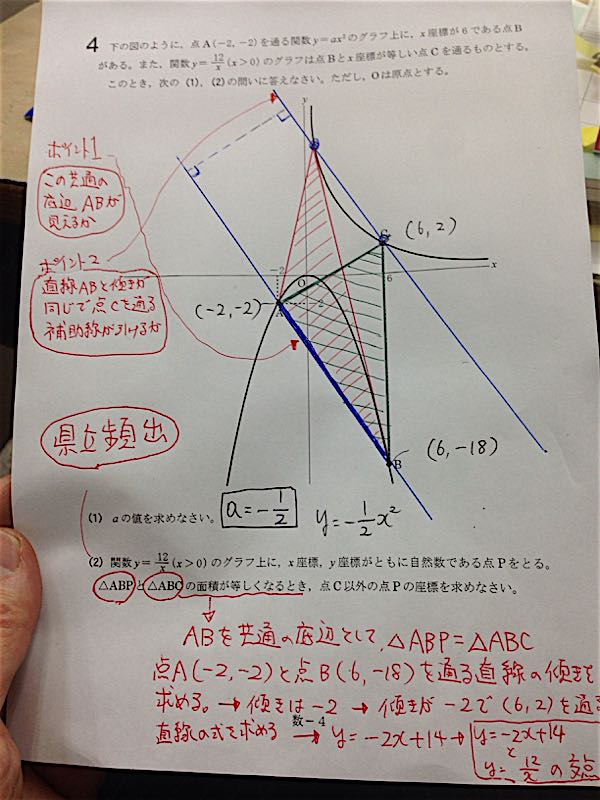 4 下の図のように，点A(−2，−2)を通る関数y=ax²のグラフ上に，x座標が6である点B
がある。また，関数y=12/x(x>0)のグラフは点Bとx座標が等しい点Cを通るものとする。
このとき，次の(1)，(2)の問いに答えなさい。ただし，Oは原点とする。
y
ポイント1
この共通の
底辺ABが
見えるか
C
(6, 2)
x
ポイント2
直線ABと傾きが
同じで点Cを通る
補助線が引けるか
−2
O
6
(-2, -2)
A
−2
県立頻出
B
(6, -18)
(1) aの値を求めなさい。
a=-1/2
y=-1/2x²
(2) 関数y=12/x(x>0)のグラフ上に，x座標，y座標がともに自然数である点Pをとる。
△ABPと△ABCの面積が等しくなるとき，点C以外の点Pの座標を求めなさい。
ABを共通の底辺として,△ABP=△ABC
点A(-2,-2)と点B(6,-18)を通る直線の傾きを
求める。→傾きは-2→傾きが-2で(6,2)を通る
直線の式を求める→y=-2x+14→y=-2x+14
と
y=12/xの交点
数−4